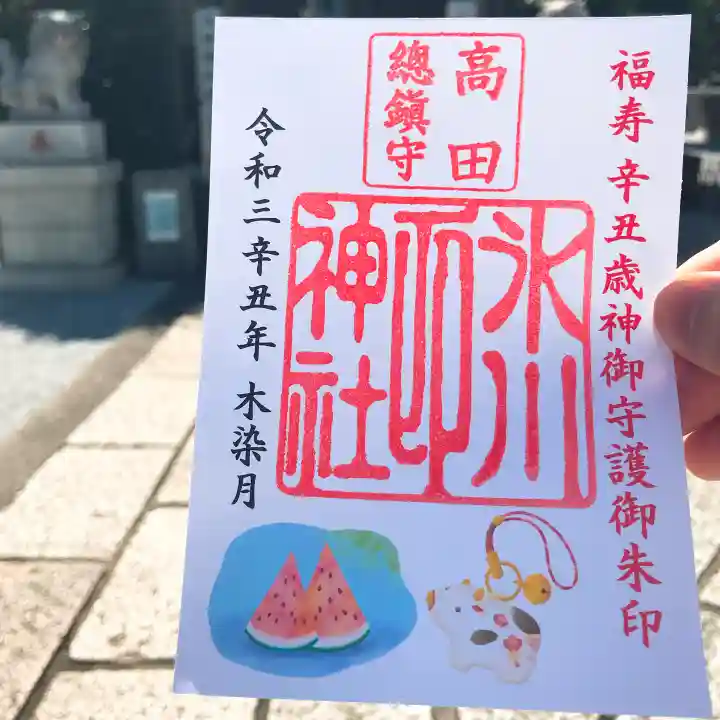 福寿 辛丑歳神御守護御朱印
高田
總鎮守
氷川
神社
印
令和三辛丑年 木染月